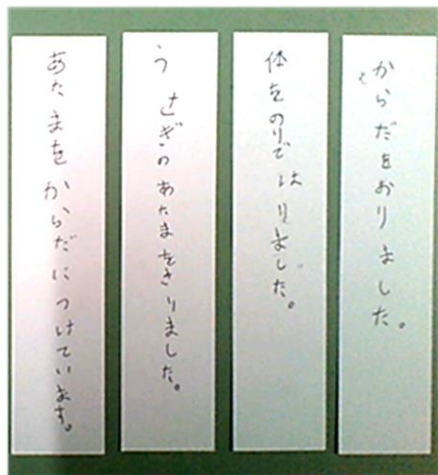 からだをおりました。
体をのりではりました。
うさぎのあたまをきりました。
あたまをからだにつけています。